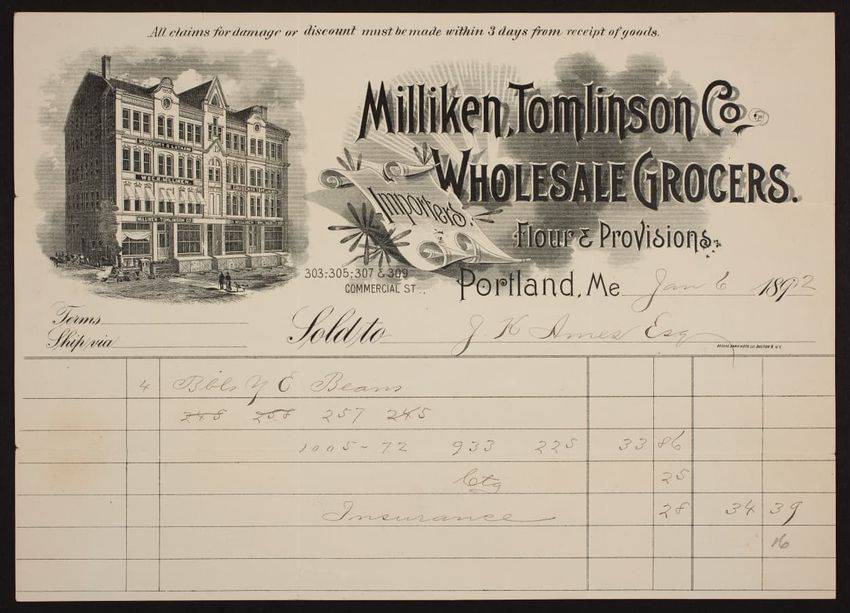 All claims for damage or discount must be made within 3 days from receipt of goods.
Milliken, Tomlinson Co.
Wholesale Grocers.
Importers.
Flour & Provisions.
WOODBURY & LATHAM
W&C.R. MILLIKEN
MILLIKEN TOMLINSON CO
303, 305, 307 & 309
COMMERCIAL ST.
Portland, Me Jan 6 1892
Terms
Ship via
Sold to J K Ames Esq
4 Bbls Y E Beans
248 258 257 245
1005-72 933 225 33 86
Ctg 25
Insurance 28 34 39
16